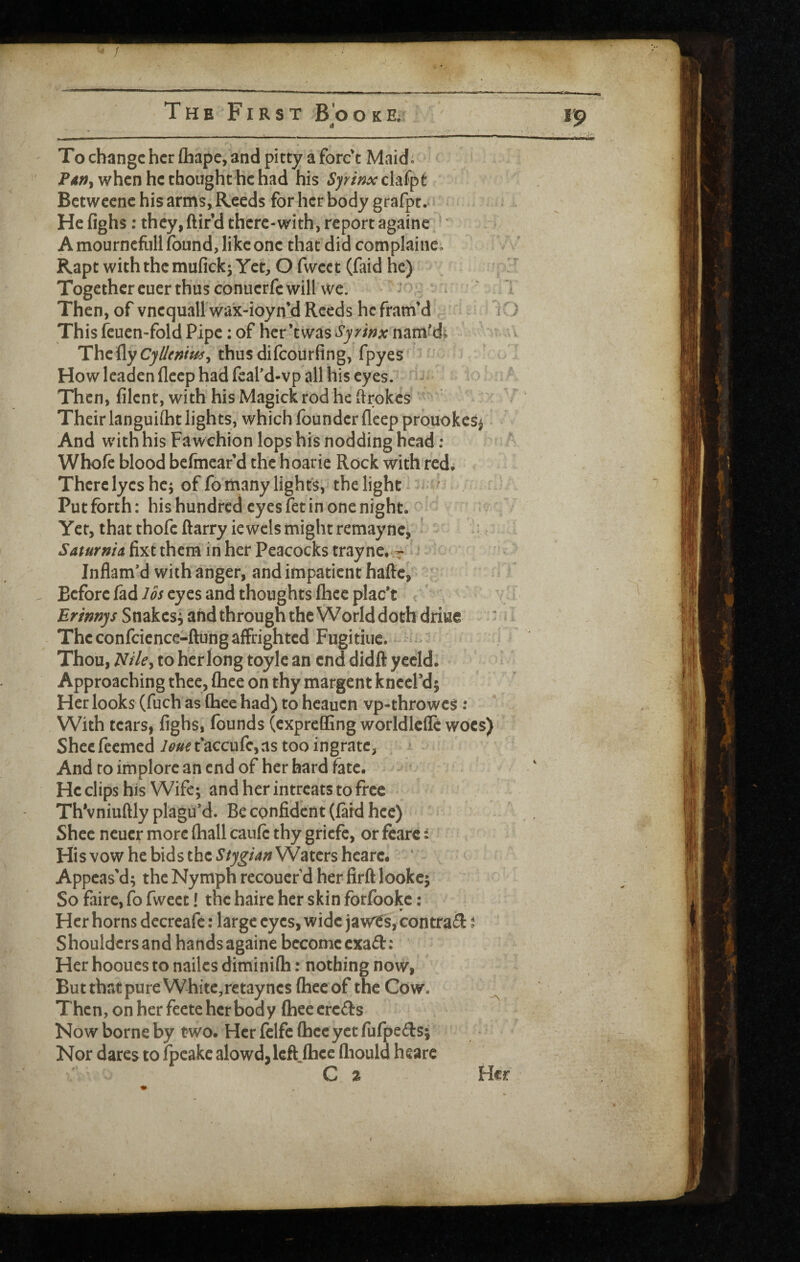 THE FIRST BOOKE. 19
To change her ſhape, and pitty a forc't Maid.
Pan, when he thought he had his Syrinx claſpt
Betweene his arms, Reeds for her body graſpt.
He ſighs: they, ſtir'd there-with, report againe
A mournefull ſound, like one that did complaine.
Rapt with the muſick; Yet, O ſweet (ſaid he)
Together euer thus conuerſe will we.
Then, of vnequall wax-ioyn'd Reeds he fram'd
This ſeuen-fold Pipe: of her 'twas Syrinx nam'd.
The ſly Cyllenius, thus diſcourſing, ſpyes
How leaden ſleep had ſeal'd-vp all his eyes.
Then, ſilent, with his Magick rod he ſtrokes
Their languiſht lights, which ſounder ſleep prouokes;
And with his Fawchion lops his nodding head:
Whoſe blood beſmear'd the hoarie Rock with red.
There lyes he; of ſo many lights, the light
Put forth: his hundred eyes ſet in one night.
Yet, that thoſe ſtarry iewels might remayne,
Saturnia fixt them in her Peacocks trayne.
Inflam'd with anger, and impatient haſte,
Before ſad Iös eyes and thoughts ſhee plac't
Erinnys Snakes; and through the World doth driue
The conſcience-ſtung affrighted Fugitiue.
Thou, Nile, to her long toyle an end didſt yeeld.
Approaching thee, ſhee on thy margent kneel'd;
Her looks (ſuch as ſhee had) to heauen vp-throwes:
With tears, ſighs, ſounds (expreſſing worldleſſe woes)
Shee ſeemed Ioue t'accuſe, as too ingrate,
And to implore an end of her hard fate.
He clips his Wife; and her intreats to free
Th'vniuſtly plagu'd. Be confident (ſaid hee)
Shee neuer more ſhall cauſe thy griefe, or feare:
His vow he bids the Stygian Waters heare.
Appeas'd; the Nymph recouer'd her firſt looke;
So faire, ſo ſweet! the haire her skin forſooke:
Her horns decreaſe: large eyes, wide jawes, contract:
Shoulders and hands againe become exact:
Her hooues to nailes diminiſh: nothing now,
But that pure White, retaynes ſhee of the Cow.
Then, on her feete her body ſhee erects
Now borne by two. Her ſelfe ſhee yet ſuſpects;
Nor dares to ſpeake alowd, leſt ſhee ſhould heare
C 2 Her